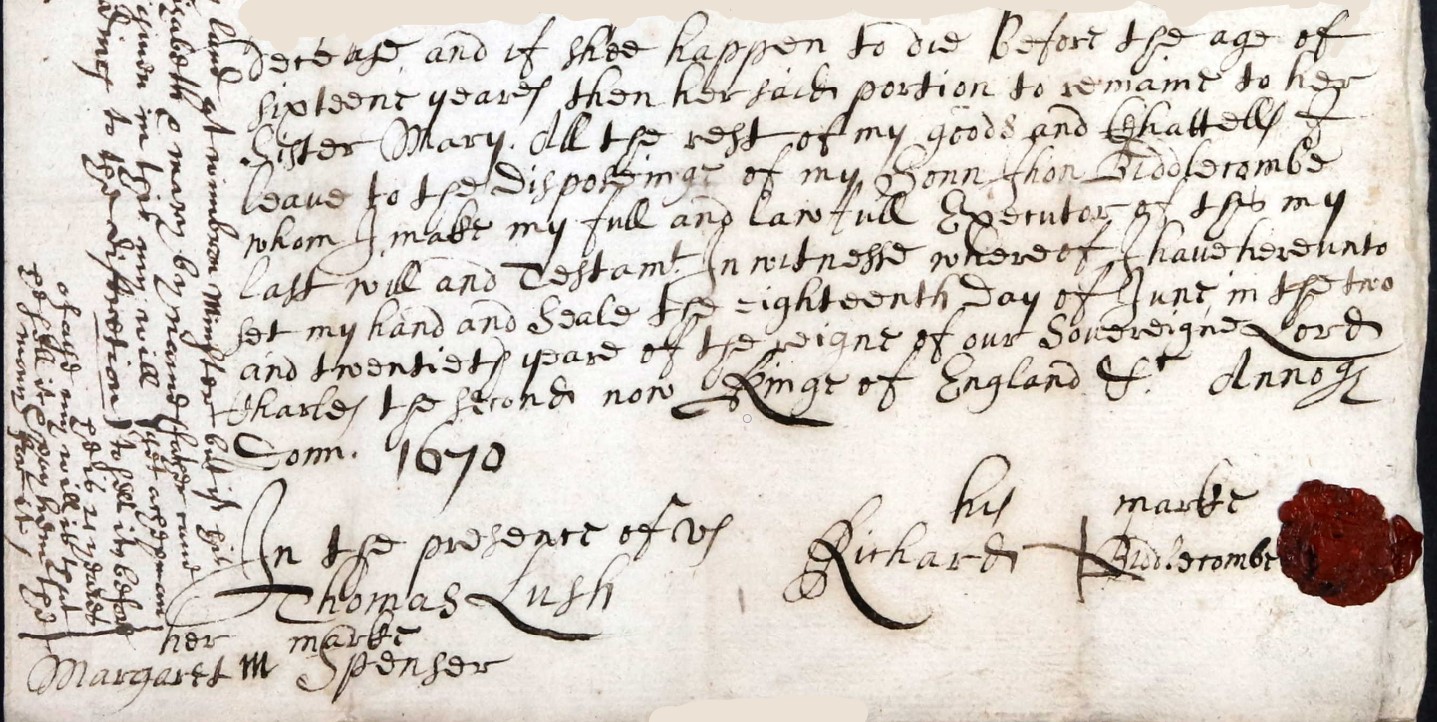 decease, and if shee happen to die before the age of
sixteene yeares then her said portion to remaine to her
Sister Mary. All the rest of my goods and Chattells I
leave to the disposeinge of my Sonn Jhon Biddlecombe
whom I make my full and lawfull Executor of this my
last will and Testamt. In witnesse whereof I have hereunto
set my hand and Seale the eighteenth day of June in the two
and twentieth yeare of the reigne of our Sovereigne Lord
Charles the second now Kinge of England &c Annoq
Dom. 1670
In the presence of us
Thomas Lush
her marke
Margaret M Spenser
his marke
Richard Biddlecombe
land at wimbron Minster but if
Elizabeth & mary by
in this my will
to the discretion
of my will is that